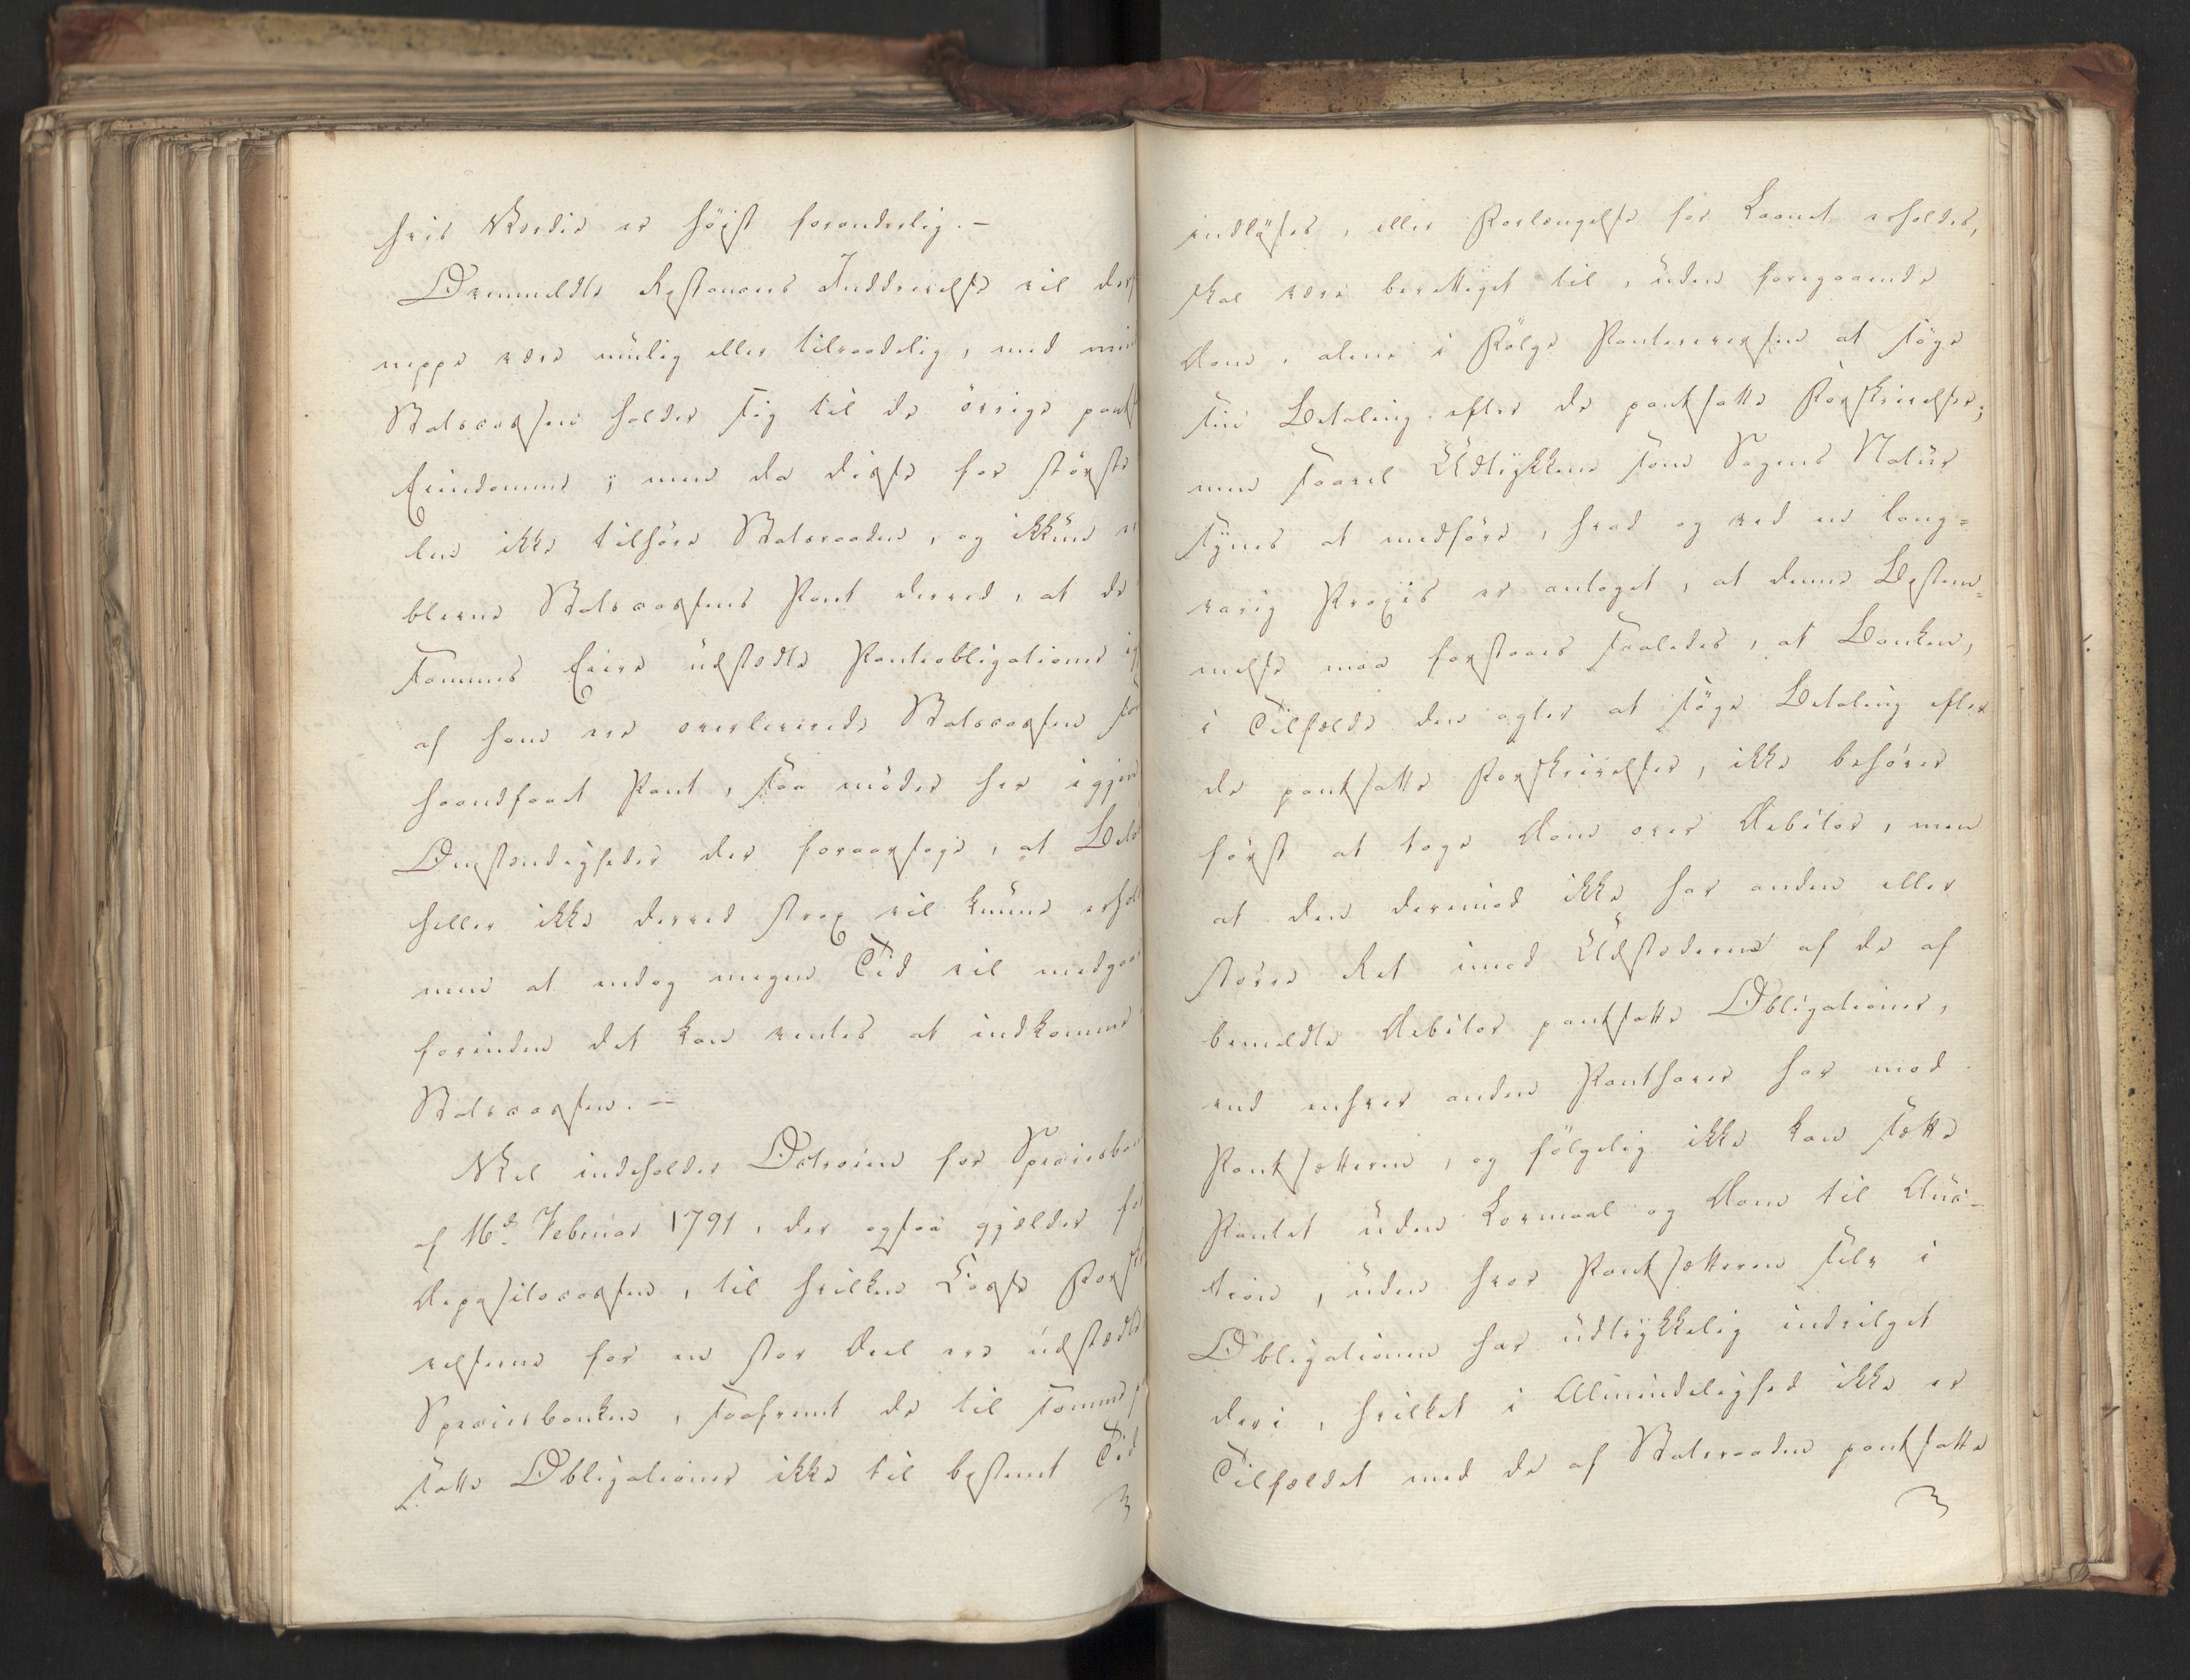 hvis Værdie er höist foranderlig. –
Ommeldte Restancers Inddrivelse vil der
neppe være mulig eller tilraadelig, med min
Statscassen holder sig til de övrige pant
Eiendomme; men da disse for störste
len ikke tilhöre Statsraaden, og ikkun
blevne Statscassens Pant derved, at de
sammes Eiere udstædte Panteobligationer
af ham ere overleverede Statscassen
haandfaaet Pant, saa möder her igjen
Omstændigheder der foraarsage, at
heller ikke derved strax vil kunne
men at endog megen Tid vil medgaae
forinden det kan ventes at indkomme
Statscassen. –
Vel indeholder Octroien for Speciesban
af 16de Februar 1791, der ogsaa gjælder for
Depositocassen, til hvilken Casse
velserne for en stor Deel ere udstædte
Speciesbanken, saafremt de til samme
satte Obligationer ikke til bestemt Tid
indlöses, eller Forlængelse for Laanet erholdes,
skal være berettiget til, uden foregaaende
Dom, alene i Fölge Panterevers en at söge
sin Betaling efter de pantsatte Forskrivelser;
men saavel Udtrykkene som Sagens Natur
synes at medföre, hvad og ved en lang-
varig Praxis er antaget, at denne Bestem-
melse maa forstaaes saaledes, at Banken,
i Tilfælde den agter at söge Betaling efter
de pantsatte Forskrivelser, ikke behöver
först at tage Dom over Debitor, men
at den derimod ikke har anden eller
större Ret imod Udstæderne af de af
bemeldte Debitor pantsatte Obligationer,
end enhver anden Panthaver har mod
Pantsætteren, og fölgelig ikke kan sætte
Pantet uden Lovmaal og Dom til Auc-
tion, uden hvor Pantsætteren selv i
Obligationen har udtrykkelig indvilget
deri, hvilket i Almindelighed ikke er
Tilfældet med de af Statsraaden pantsatte